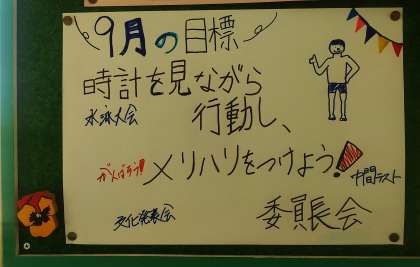 9月の目標
時計を見ながら
水泳大会
行動し、
がんばろう!!
メリハリをつけよう!
中間テスト
文化発表会
委員長会